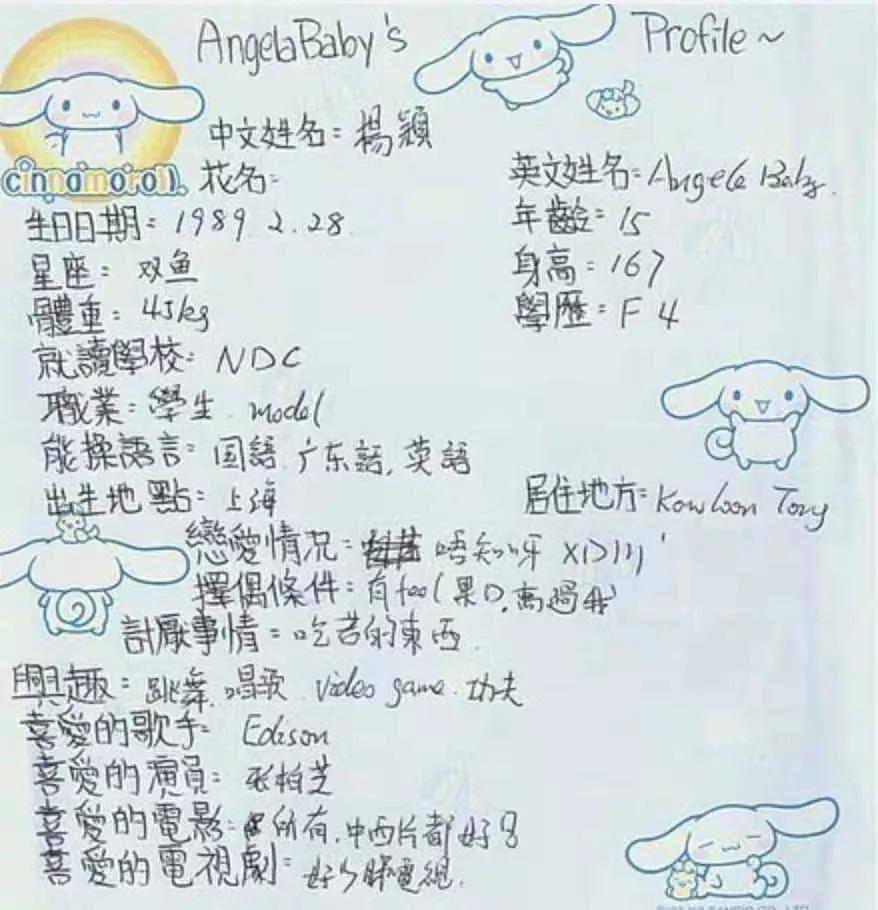 AngelaBaby's Profile~
cinnamoroll
中文姓名: 楊穎
花名:
英文姓名: Angela Baby.
生日日期: 1989.2.28
年齡: 15
星座: 双鱼
身高: 167
體重: 45kg
學歷: F 4
就讀學校: NDC
職業: 學生. model
能操語言: 国語. 广东話. 英語
出生地點: 上海
居住地方: Kowloon Tong
戀愛情況: 唔知呀 XD
擇偶條件: 有feel果D. 高過我
討厭事情: 吃苦的東西.
興趣: 跳舞. 唱歌. video game. 功夫
喜愛的歌手: Edison
喜愛的演員: 張柏芝
喜愛的電影: 所有. 中西片都好
喜愛的電視劇: 好少睇電視.